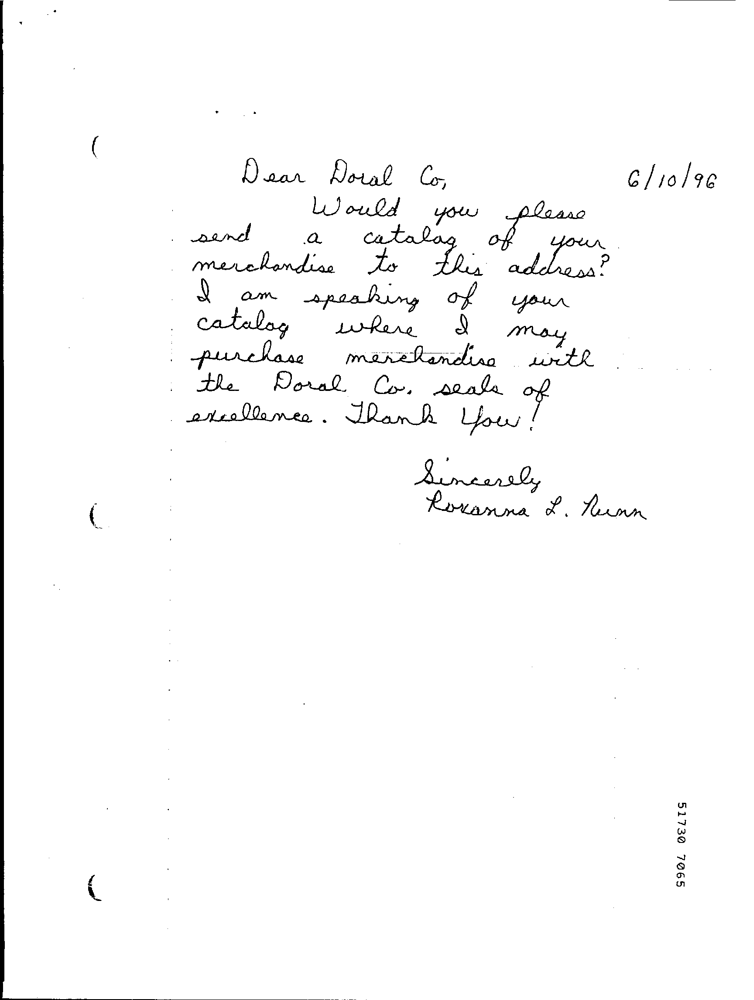 Dear Doral Co,
6/10/96
Would you please
send a catalog of your
merchandise to this address?
I am speaking of your
catalog where I may
purchase merchandise with
the Doral Co. seals of
excellence. Thank You!
Sincerely
Roxanna L. Nunn
51730 7065